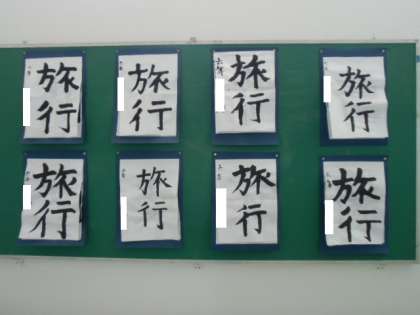 旅行
旅行
六年
旅行
旅行
旅行
旅行
旅行
旅行